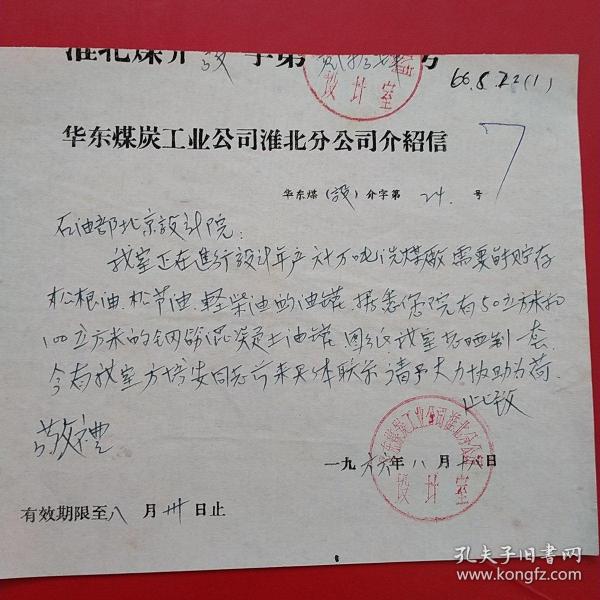 淮北煤介 設 字第 号
设计室
66.8.22(1)
华东煤炭工业公司淮北分公司介紹信
华东煤(設)分字第 24. 号
石油部北京設計院:
我室正在進行設計年产 万吨洗煤厰需要 贮存
松根油.松节油.軽柴油的油罐.据悉你院有50立方米和
100立方米的钢筋混凝土油罐图纸.我室 晒制一套.
今有我室方培安同志前来具体联系.請予大力协助为荷.
此致
敬禮
华东煤炭工业公司淮北分公司
设计室
一九六六年八月十八日
有效期限至八月卅日止
孔夫子旧书网
www.kongfz.com